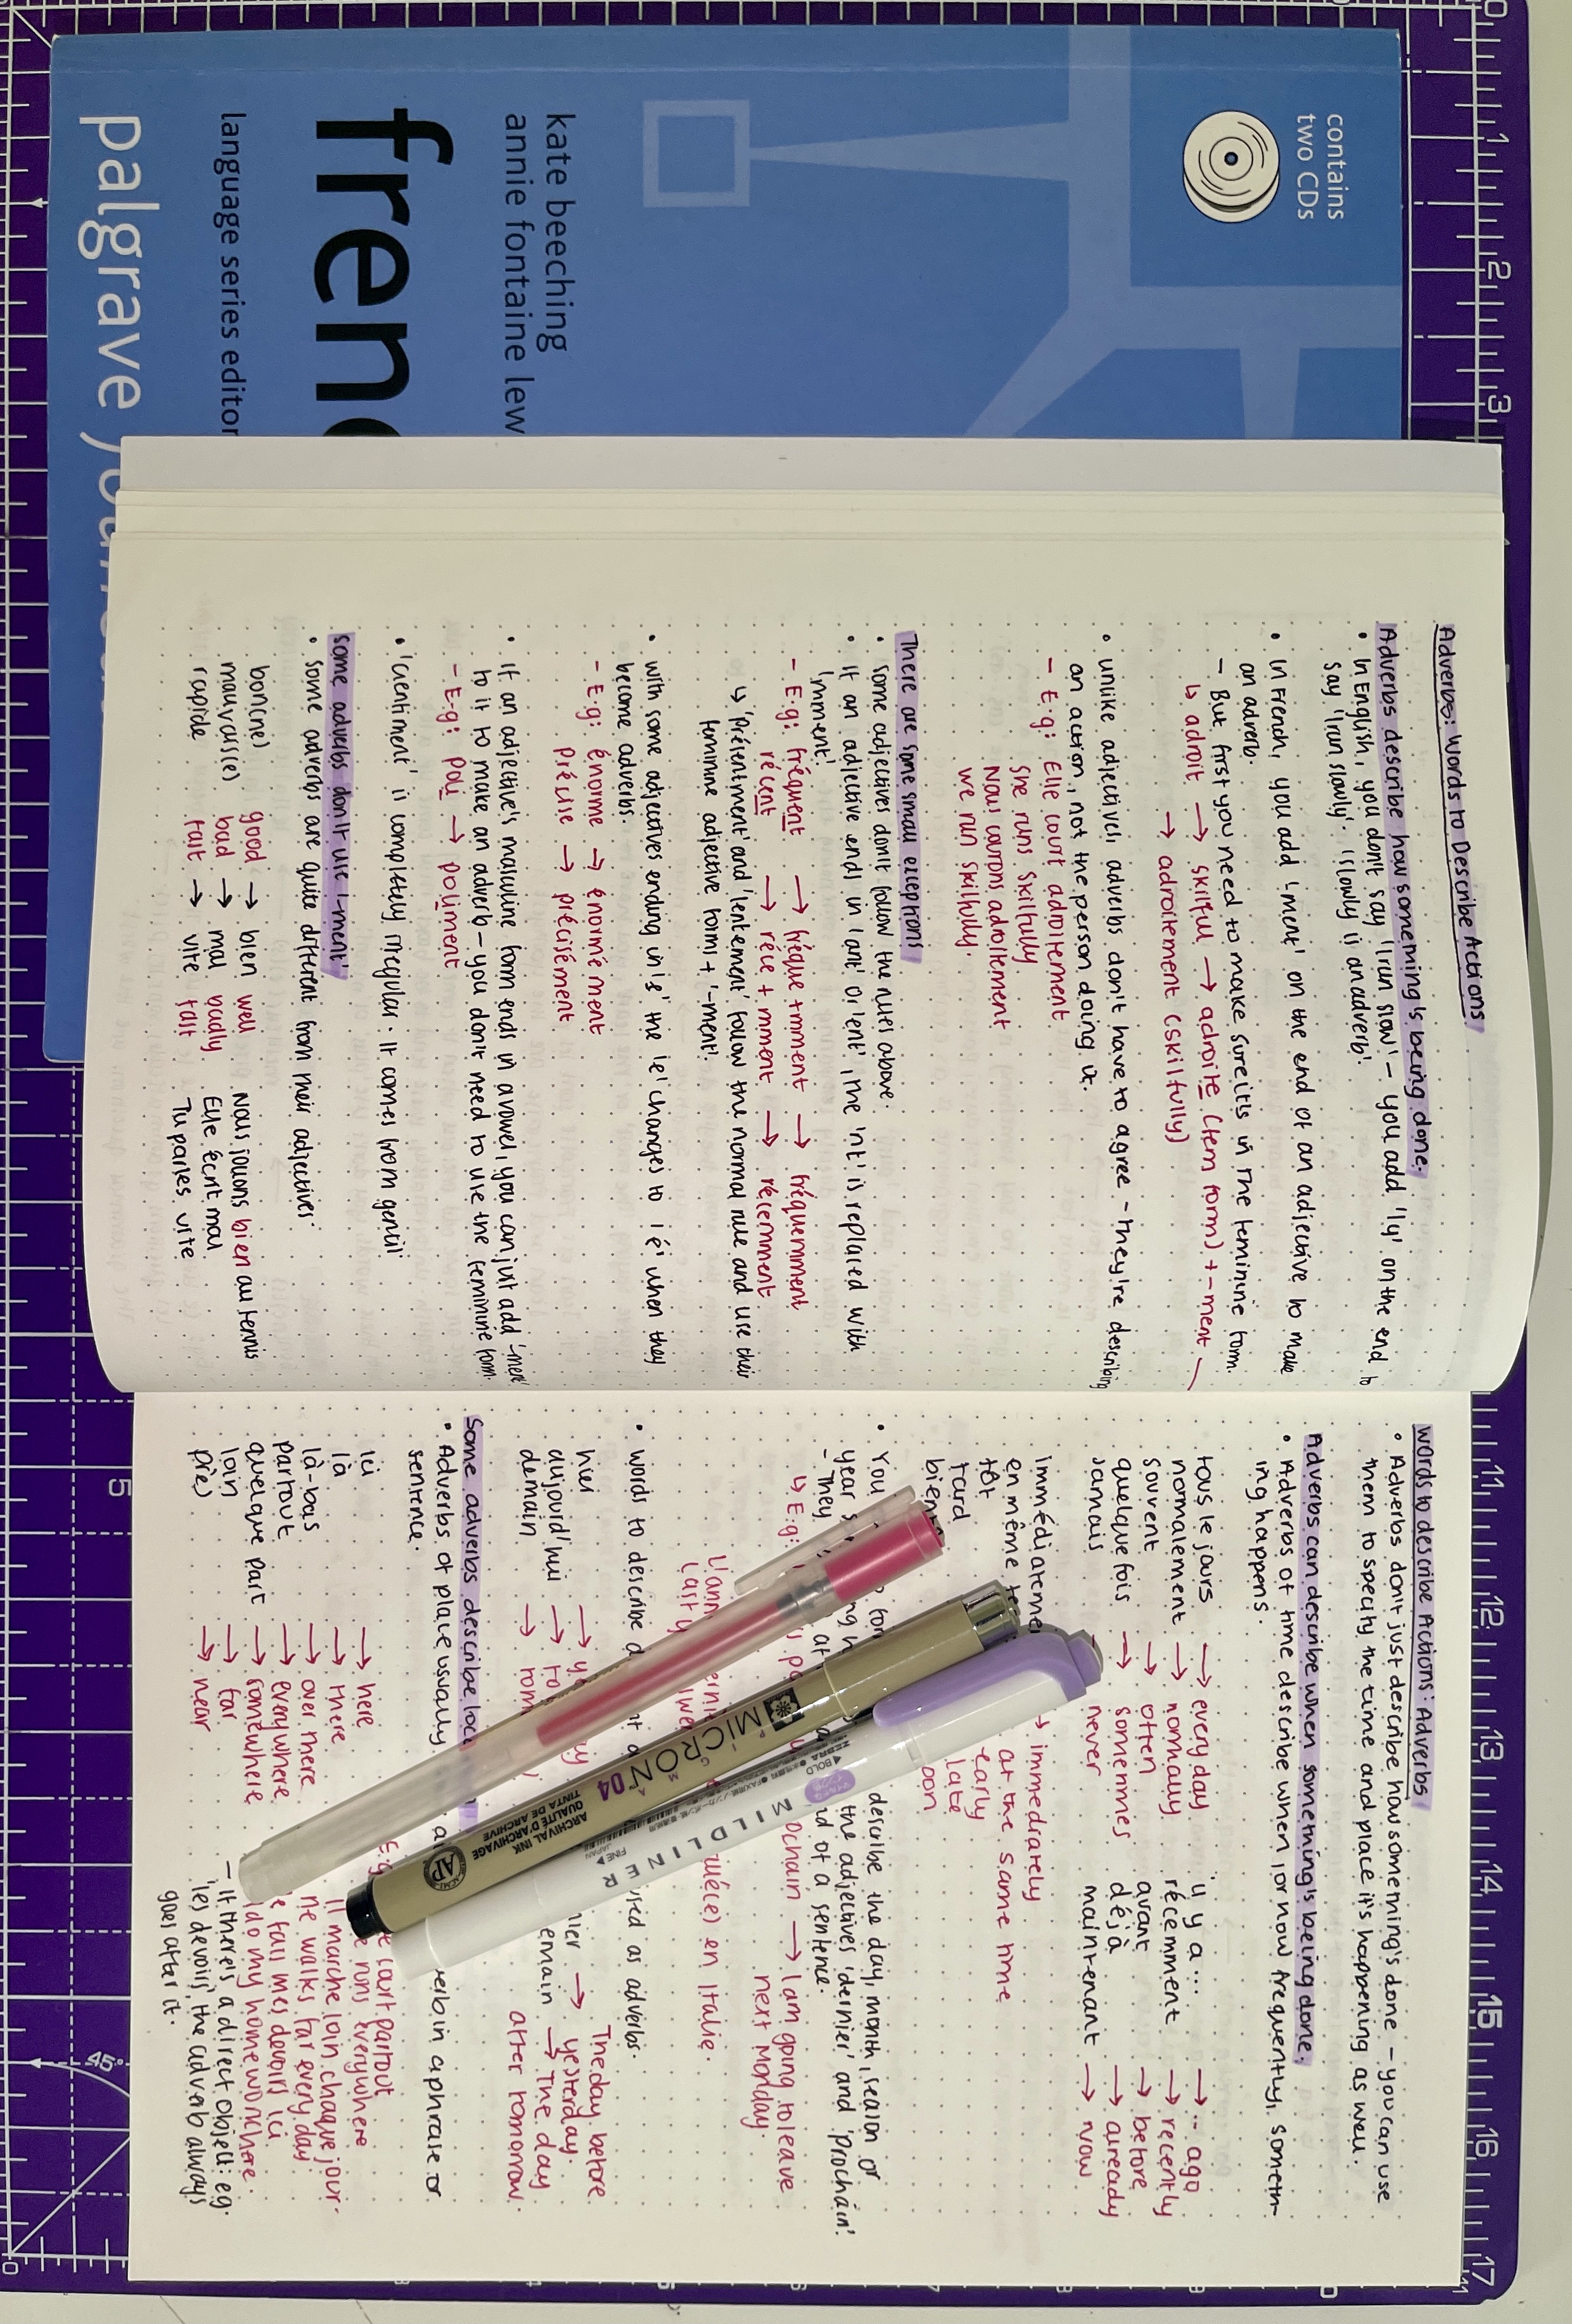 contains
two CDs
kate beeching
annie fontaine lew
frenc
language series editor
palgrave
Adverbs: Words to Describe Actions
Adverbs describe how something is being done.
• In English, you don't say 'I run slow' – you add 'ly' on the end to
say 'I run slowly'. 'slowly is an adverb'.
• In French, you add '-ment' on the end of an adjective to make
an adverb.
– But first you need to make sure it's in the feminine form.
↳ adroit → skilful → adroite (fem form) + -ment
→ adroitement (skilfully)
• unlike adjectives adverbs don't have to agree - they're describing
an action, not the person doing it.
– E.g: Elle court adroitement
She runs skilfully
Nous courons adroitement
we run skilfully.
There are some small exceptions
• some adjectives don't follow the rules above.
• If an adjective ends in 'ant' or 'ent', the 'nt' is replaced with
'mment'.
– E.g: fréquent → fréque + mment → fréquemment
récent → réce + mment → récemment
↳ 'présentment' and 'lentement' follow the normal rule and use their
feminine adjective forms + '-ment'.
• with some adjectives ending in 's' the 'e' changes to 'é' when they
become adverbs.
– E.g: énorme → énormément
précise → précisément
• If an adjective's masculine form ends in a vowel, you can just add '-ment'
to it to make an adverb – you don't need to use the feminine form.
– E.g: poli → poliment
• 'Gentiment' is completely irregular. It comes from 'gentil'
some adverbs don't use '-ment'
• some adverbs are quite different from their adjectives.
bon(ne) good → bien well Nous jouons bien au tennis
mauvais(e) bad → mal badly Elle écrit mal
rapide fast → vite fast Tu parles vite
words to describe Actions: Adverbs
• Adverbs don't just describe how something's done – you can use
them to specify the time and place it's happening as well.
Adverbs can describe when something's being done.
• Adverbs of time describe when, or how frequently, someth-
ing happens.
tous le jours → every day il y a ... → .. ago
normalement → normally récemment → recently
souvent → often avant → before
quelque fois → sometimes déjà → already
Jamais never maintenant → now
Immédiateme → immediately
en même te at the same time
tôt early
tard late
bient oon
• You for describe the day, month, season or
year the adjectives 'dernier' and 'prochain'.
– They at nd of a sentence.
↳ E.g: ochain → I am going to leave
next Monday.
L'ann erni en Italie.
Last y
• words to describe d used as adverbs.
hier → y ay hier → The day before
yesterday.
aujourd'hui → to
demain → tom emain → The day
after tomorrow.
Some adverbs describe loc
• Adverbs of place usually verb in a phrase or
sentence.
ici → here
là → there
là-bas → over there
partout → everywhere
quelque part → somewhere
loin → far
près → near
E.g court partout
e runs everywhere
Il marche loin chaque jour.
he walks far every day
e fais mes devoirs ici
I do my homework here.
– If there's a direct object: eg.
'les devoirs', the adverb always
goes after it.
MICRON 04
PIGMA
ARCHIVAL INK
QUALITÉ D'ARCHIVAGE
TINTA DE ARCHIVE
AP
MILDLINER
ZEBRA
BOLD
FINE
JAPAN
1
2
3
11
12
13
14
15
16
17
5
45°
0